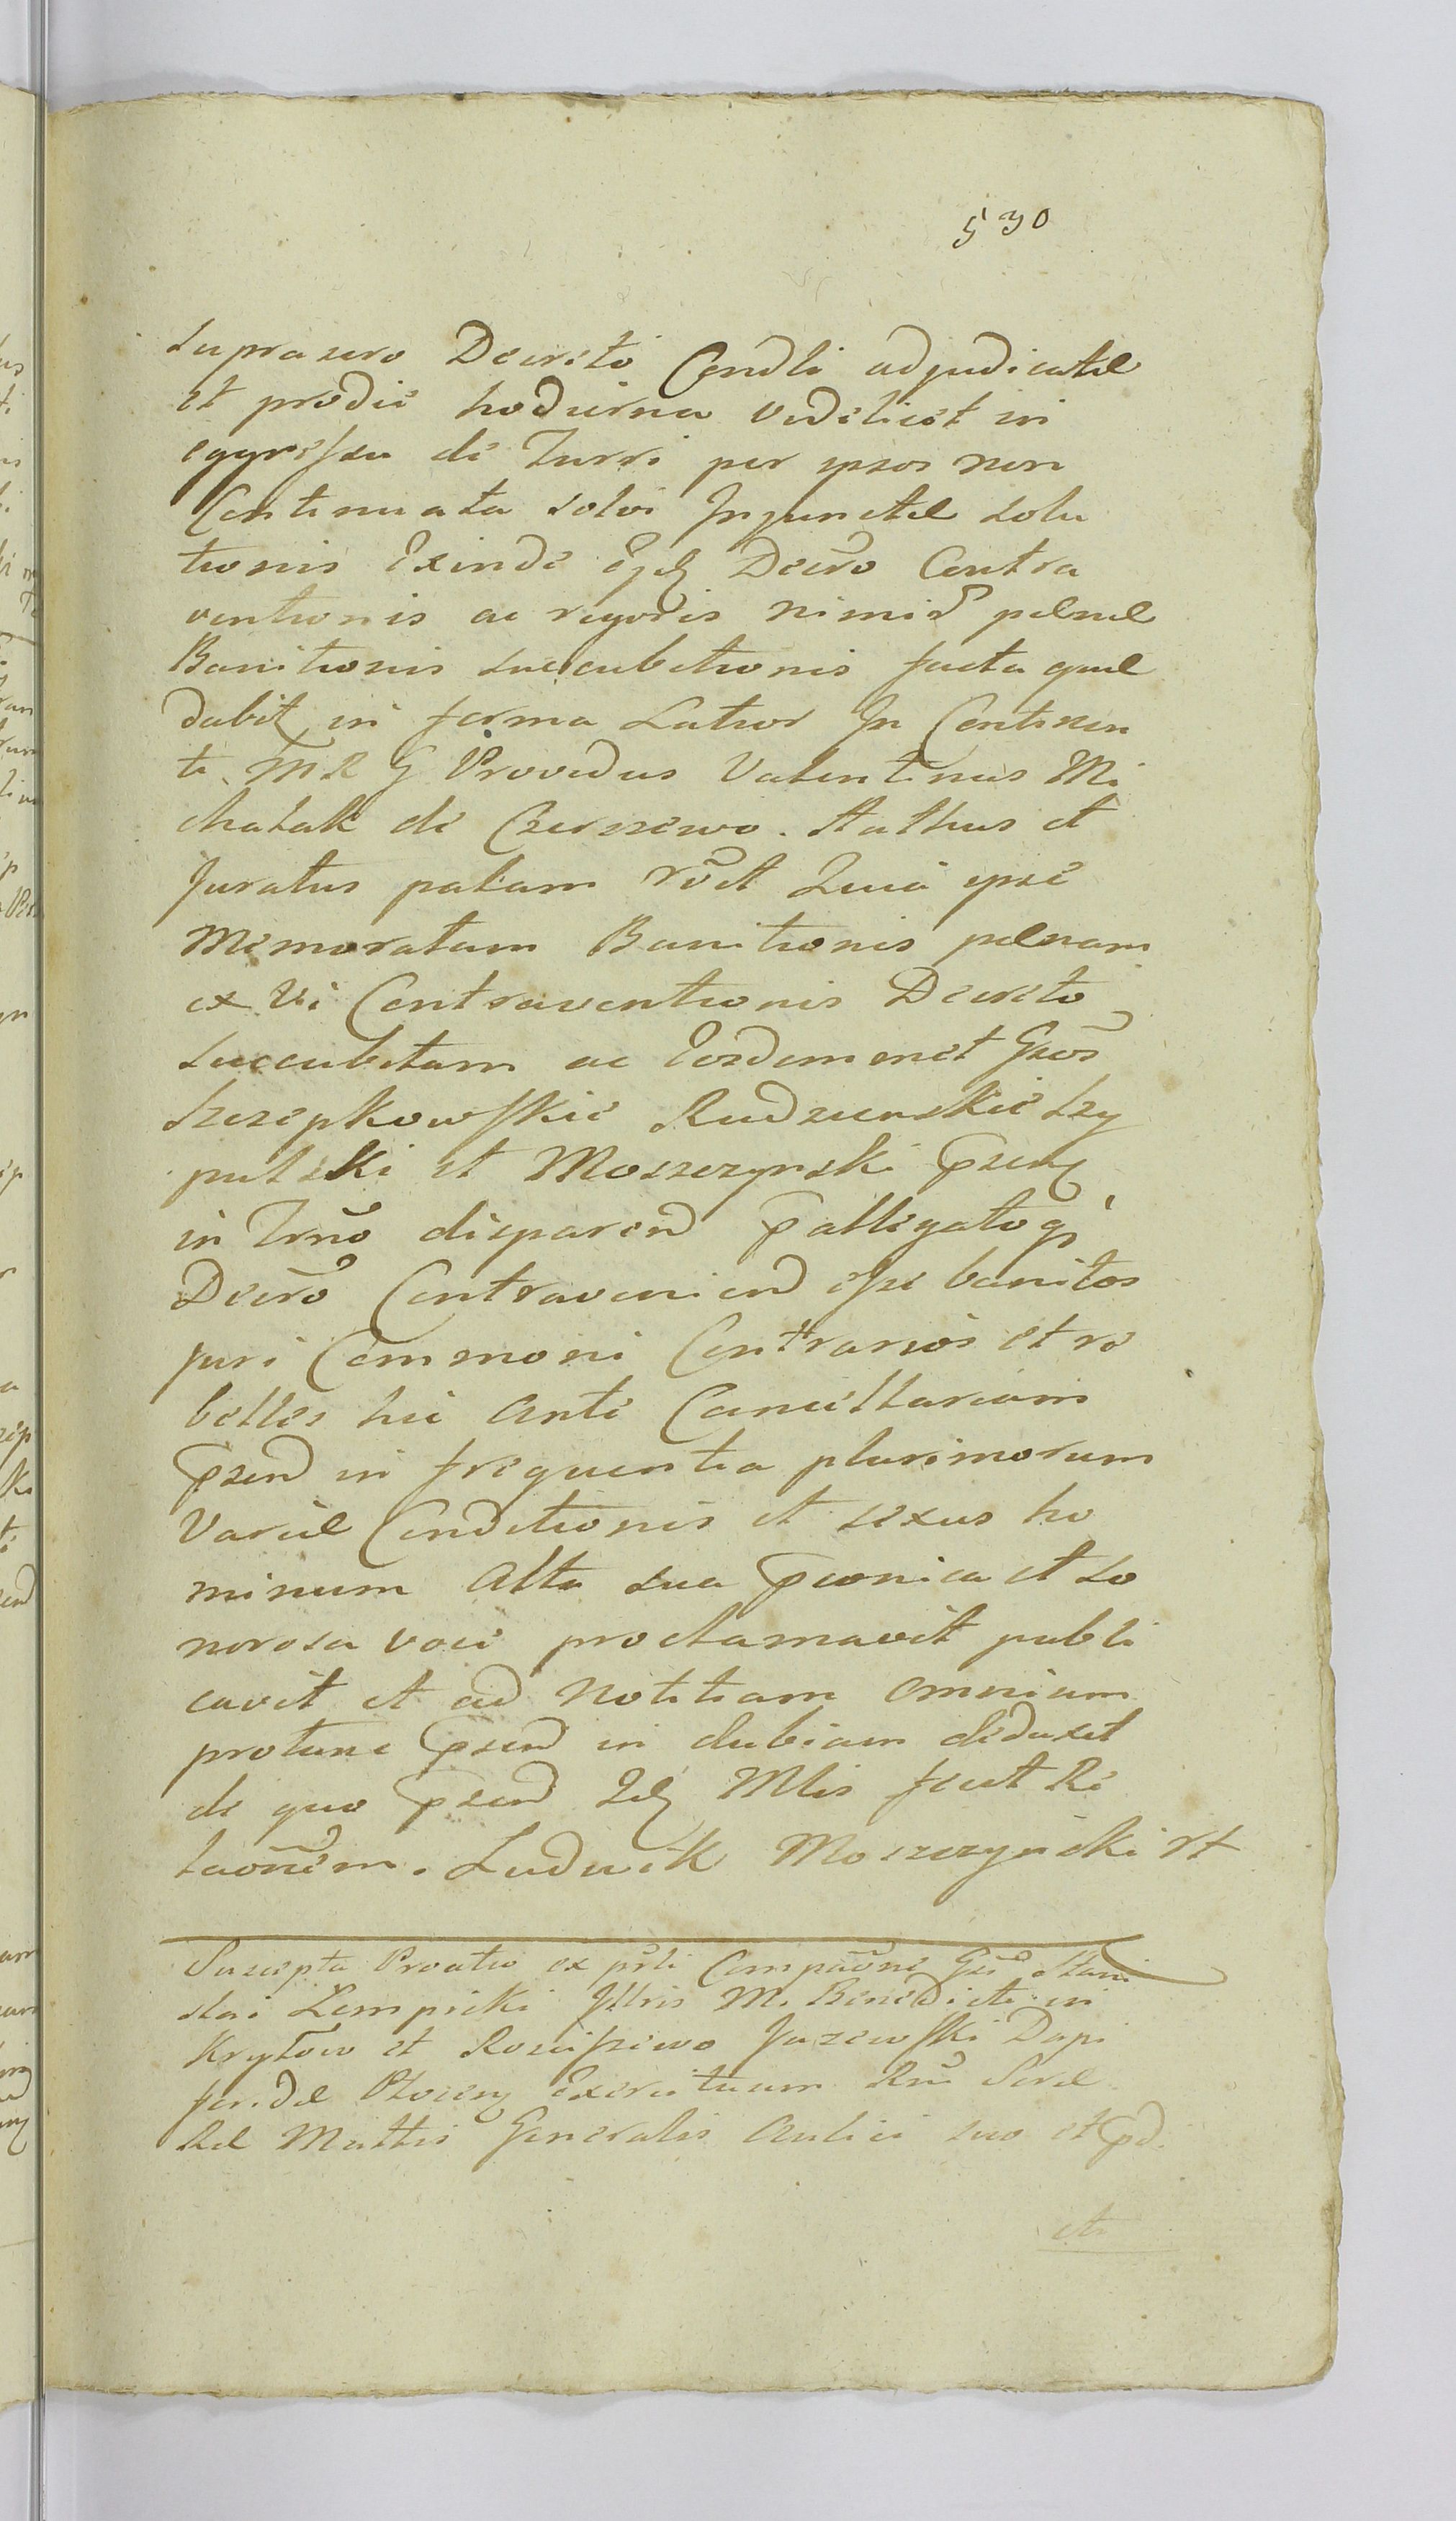 530
supra sero Decreto Condli adjudicatæ
et prodie hodierna videlicet in
eggressu de Turri per ipsos non
Continuata solvi Injunctæ solu
tionis Exinde Decro Contra
ventionis ac rigoris nimi pænæ
Banitionis succubitionis facta quæ
dabit in forma Latior In Continen
ti M R G Providus Valentinus Mi
chalak de Czerszewo. Authus et
Juratus palam rõt Quia ipse
Memoratam Banitionis pænam
ex Vi Contraventionis Decreto
succubitam ac Eosdemmet Gsos
Szczepkowskie Rudzienskie Szy
pulski et Moszczynski
in Trno disparend
Decro Contraveniend esse banitos
juri Commoni Contrarios et re
belles hic ante Cancellariam
pzend in frequentia plurimorum
Variæ Conditionis et sexus ho
minum alta sua pconica et so
norosa voce proclamavit publi
cavit et ad notitiam omnium
protunc pzend in dubiam deduxit
de quo pzend Mlis fecit Re
laonem. Ludwik Moszczynski
Suscepta Protio ex Compaone Gsi Stani
slai Lempicki Illris M. Benedicti in
Krytow et Rosciszewo Jazewski Dapi
feridæ Exercituum Rni Seræ
Ræ Mattis Generalis Aulici suo et